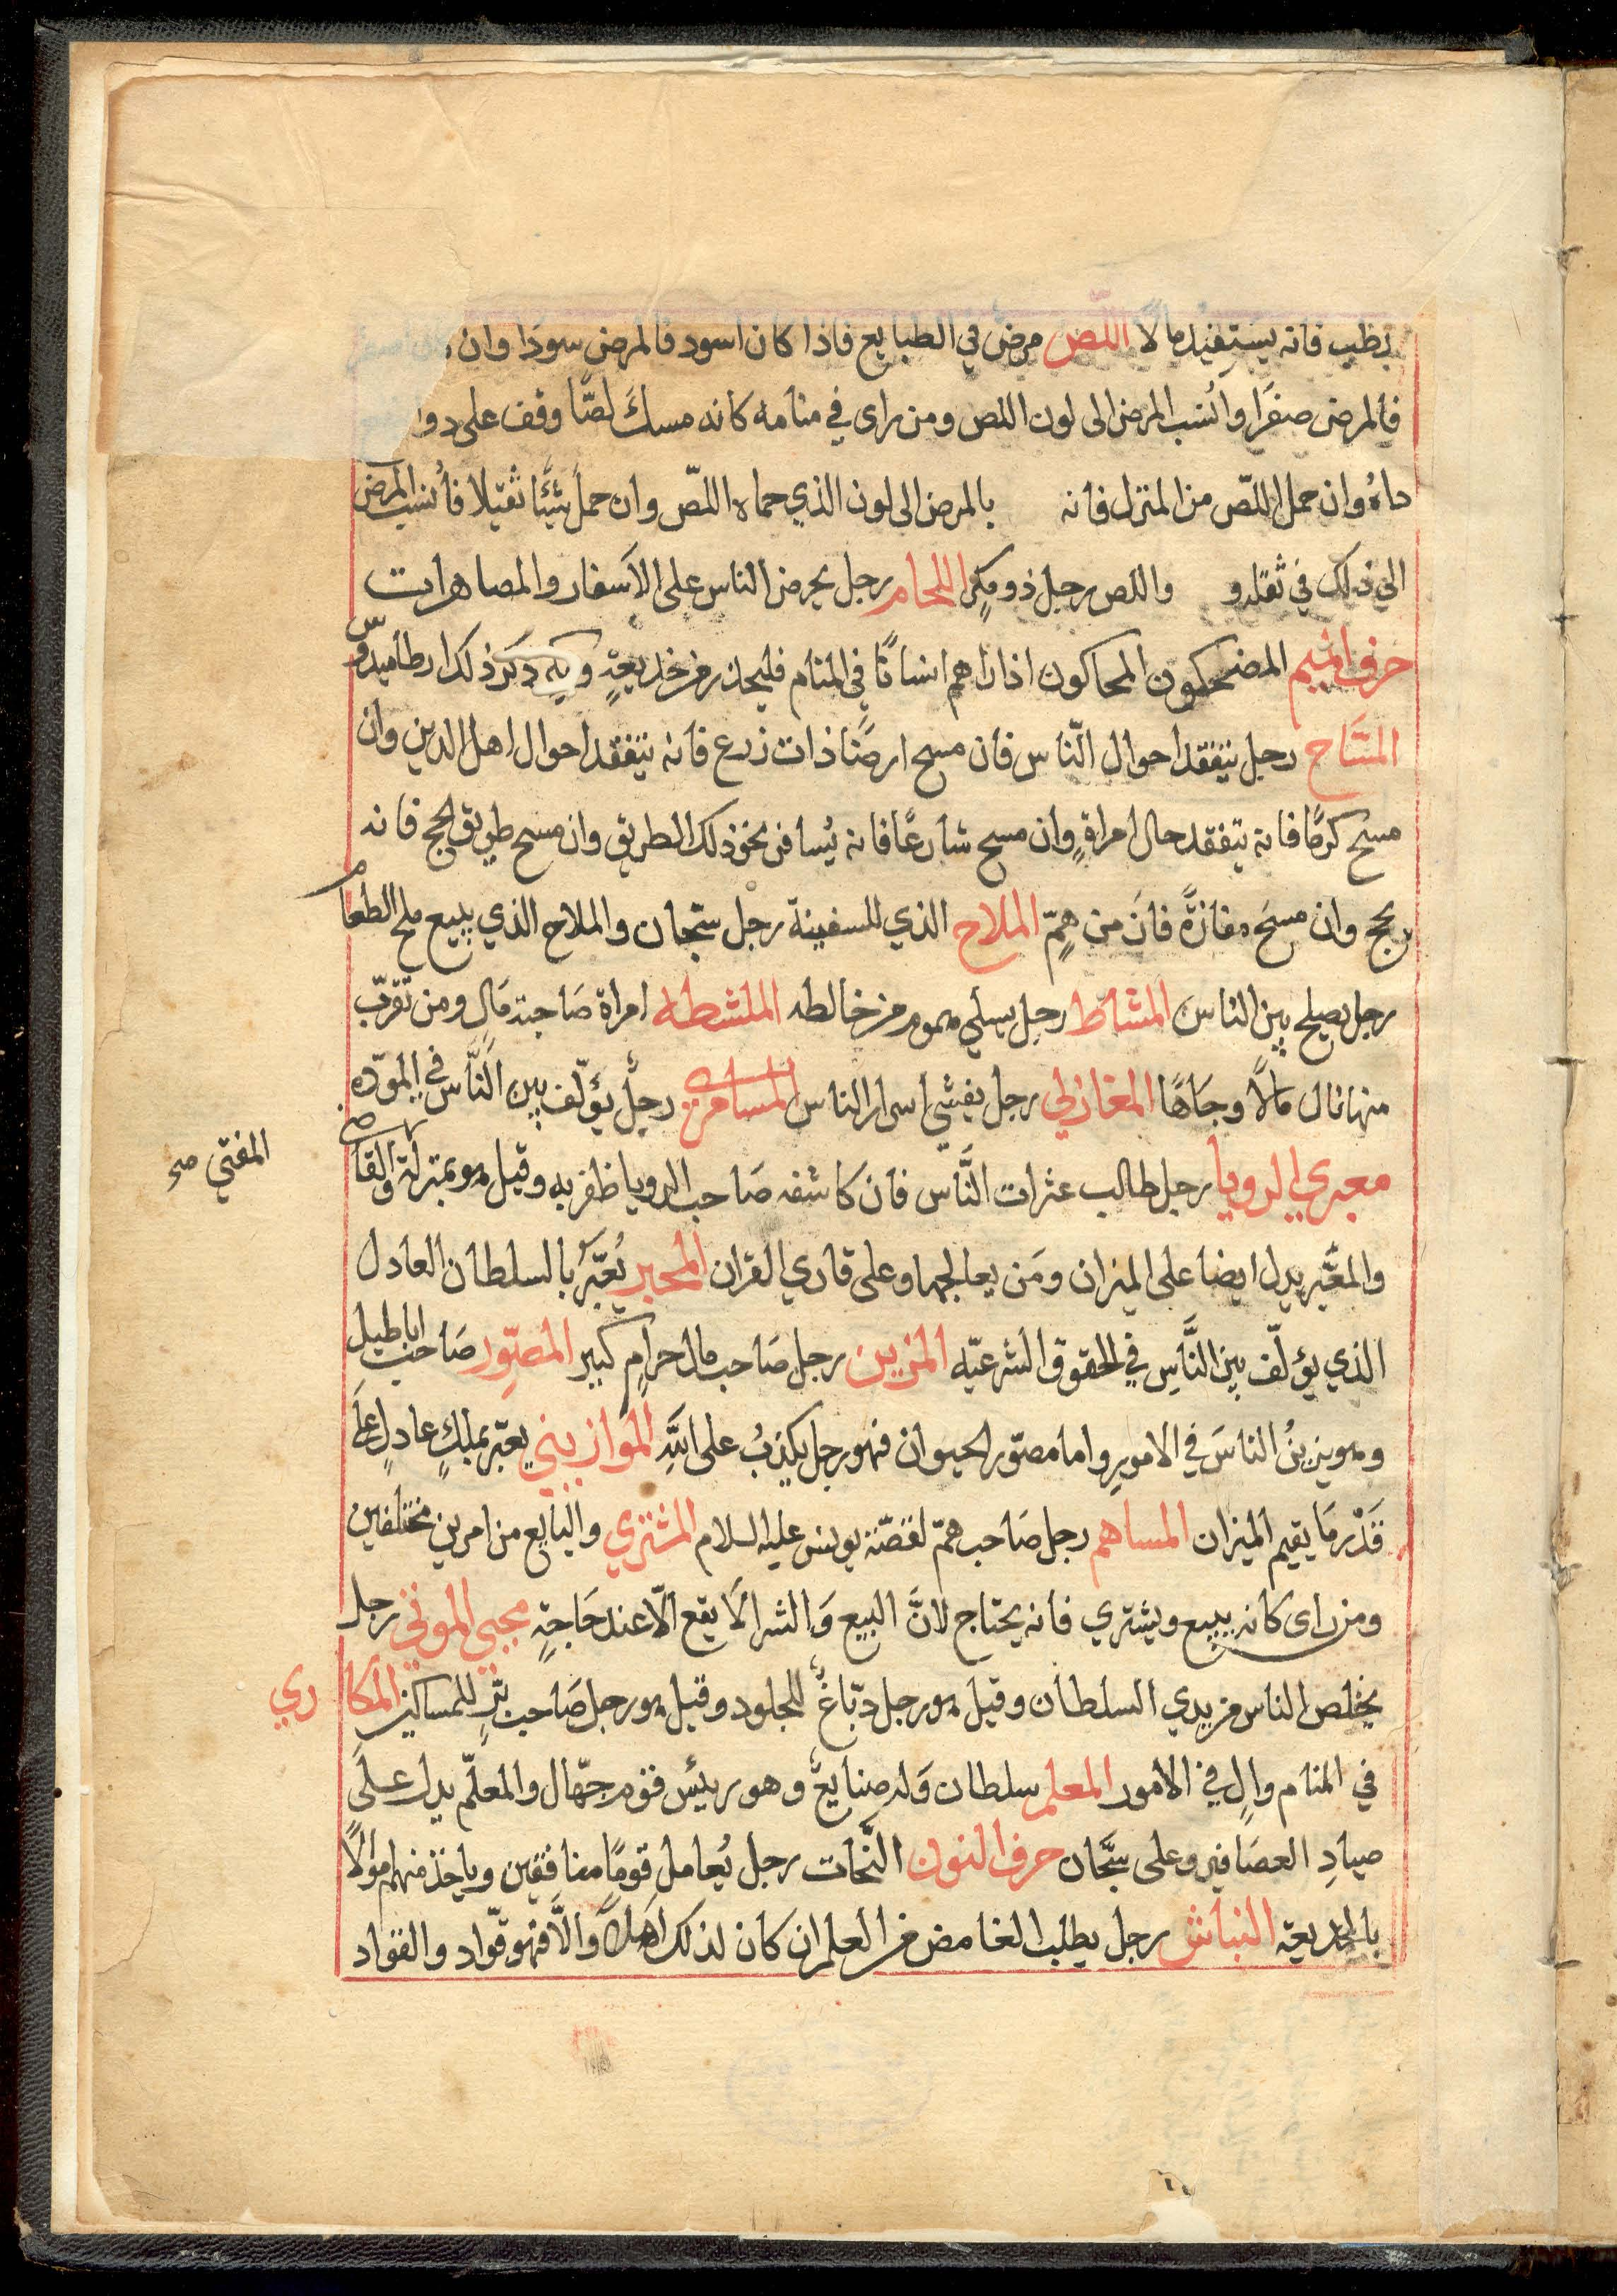 فانه يستفيد مالا اللّص مرض في الطبايع فاذا كان اسود فالمرض سودا وان كان اصفر
فالمرض صفرا وانسب المرض الى لون اللص ومن راى في منامه كانه مسك لصًّا وقف على
وان حمل اللصّ من المنزل فانه بالمرض الى لون الذي حماه اللصّ وان حمل شيئًا ثقيلا فأنسب المرض
الي ذلك في ثقله و واللص رجل ذو مكرٍ اللحام رجل يحرض الناس على الاسفار والمصاهرات
حرف الميم المضحكون المحاكون اذا راهم انسانًا في المنام فليحذر من خديعةٍ ذكر ذلك ارطاميدوس
المسَّاح رجل يتفقد احوال النّاس فان مسح ارضًا ذات زرع فانه يتفقد احوال اهل الدين وان
مسح كرمًا فانه يتفقد حال امراةٍ وان مسح شارعًا فانه يُسافر نحو ذلك الطريق وان مسح طريق الحج فانه
يحج وان مسحَ مفازةً فانَ من همٍّ الملاح الذي للسفينة رجل سجّان والملاح الذي يبيع ملح الطعام
رجل يصلح بين الناس المشاط رجل يسلي هموم من خالطه الماشطه امراة صَاحبة مَالٍ ومن تقرّب
منها نال مالًا وجَاهًا المغازلي رجل يفشي اسرار الناس المسامري رجلٌ يؤلّف بين النَّاس في المَودّه
معبري الرويا رجل طالب عثرات النَّاس فان كاشفه صَاحب الرويا ظفر به وقيل هو بمنزلة والقاضي
المفتي صح
والمعَّبر يدل ايضا على الميزان ومَن يعالجها وعلى قاري القران المجبر يُعَبَّرُ بالسلطان العادل
الذي يؤلّف بين النَّاسِ في الحقوق الشرعيّه المزين رجل صَاحب مال حرامٍ كبير المصوّر صَاحب اباطيل
وهو يزينُ الناسَ في الامورِ واما مصوّر الحيوان فهو رجل يكذبُ على اللهِ الموازيني يعبّر بملكٍ عادلٍ عَلَى
قَدْر مَا يقيم الميزان المساهم رجل صَاحب همّ لقصّة يونس عليه السلام المشتري والبايع من امرين مختلفين
ومن راى كانه يبيع ويشتري فانه يحتاج لانَّ البيع وَالشرا لَا يقع الّا عند حَاجةٍ محيي الموتى رجل
يخلص الناس من يدي السلطان وقيل هو رجل دبّاغٌ للجلود وقيل هو رجل صَاحب برّ للمساكين المكاري
في المنام والٍ في الامور المعلم سلطان وَله صنايعٌ وهو رييس قوم جهّال والمعلّم يدل علَى
صيادِ العصَافير وعلى سجَّان حرف النون النَّحات رجل يُعامل قومًا منافقين وياخذ منهم اموالًا
بالخديعة النباش رجل يطلب الغامض من العلم ان كان لذلك اهلًا والَّا فهو قوّاد والقواد